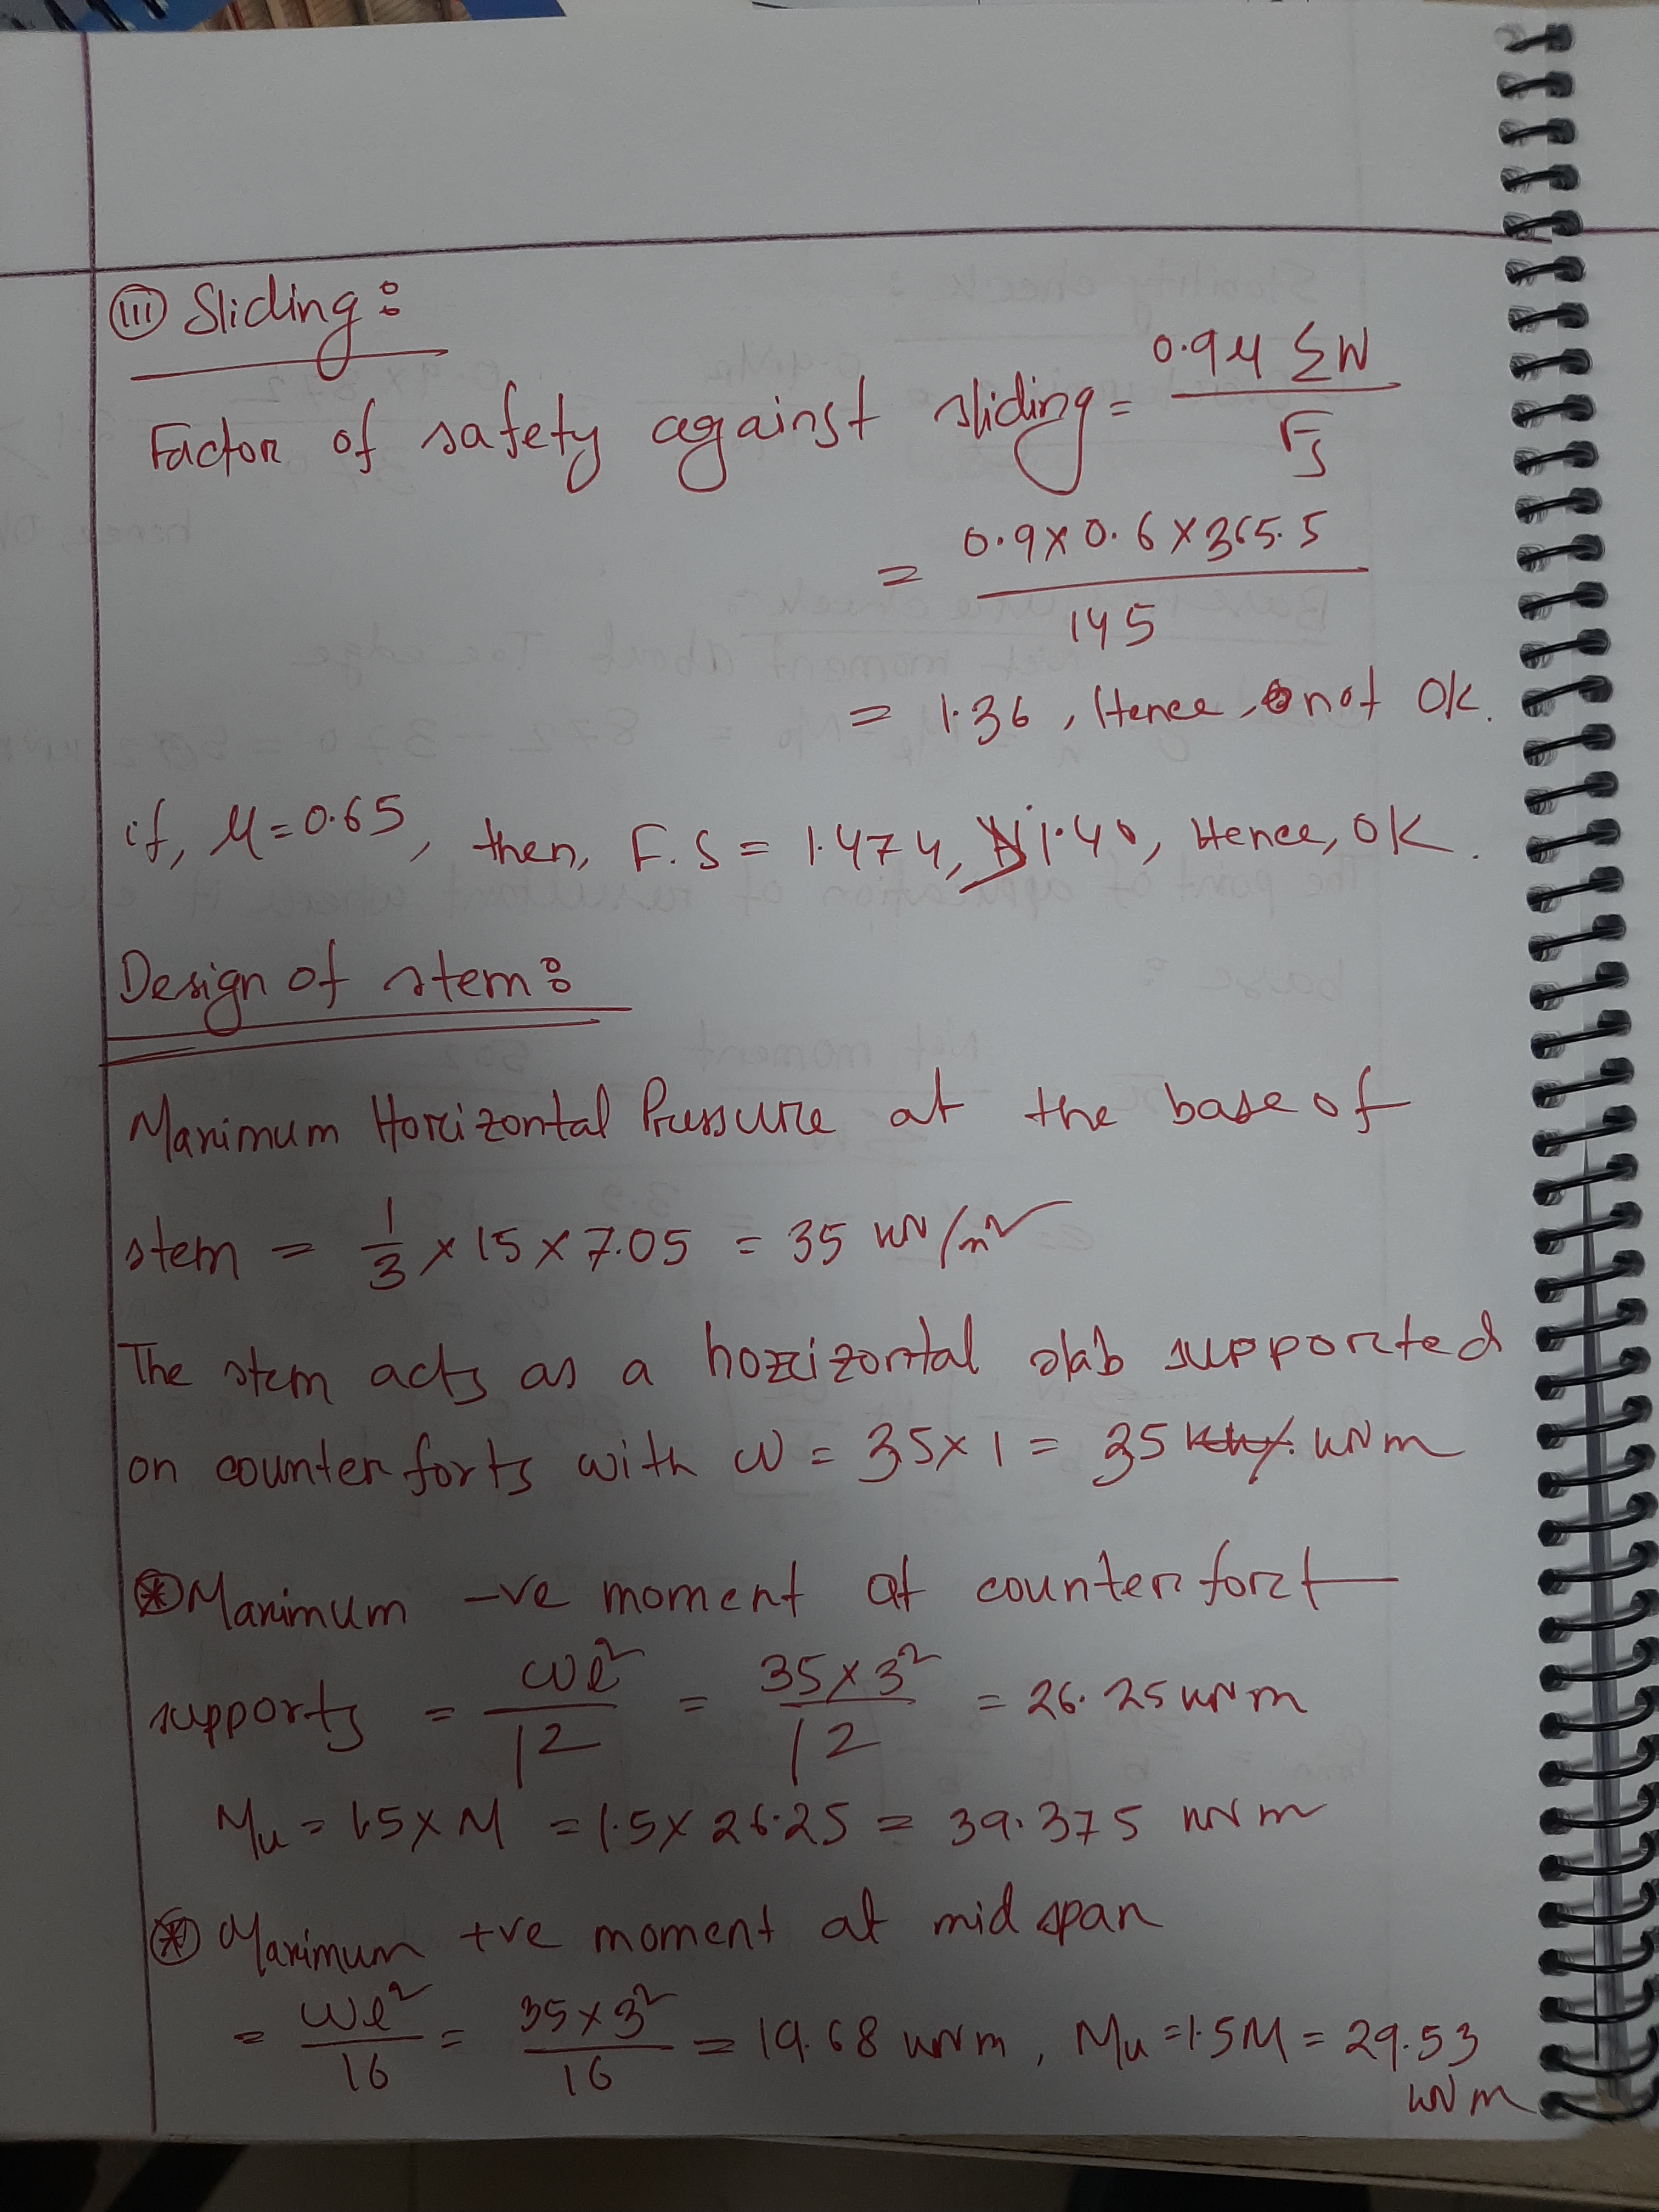 (iii) Sliding:
Factor of safety against sliding = 0.9μ ΣW / Fs
= 0.9×0.6×365.5 / 145
= 1.36, Hence, not OK.
if, μ=0.65, then, F.S = 1.474, 1.40, Hence, OK.
Design of stem:
Maximum Horizontal Pressure at the base of
stem = 1/3 × 15 × 7.05 = 35 kN/m²
The stem acts as a horizontal slab supported
on counter forts with ω = 35×1 = 35 kNm
⊛ Maximum -ve moment at counter fort
supports = ωl²/12 = 35×3²/12 = 26.25 kNm
Mu = 1.5×M = 1.5×26.25 = 39.375 kNm
⊛ Maximum +ve moment at mid span
= ωl²/16 = 35×3²/16 = 19.68 kNm, Mu = 1.5M = 29.53
kNm